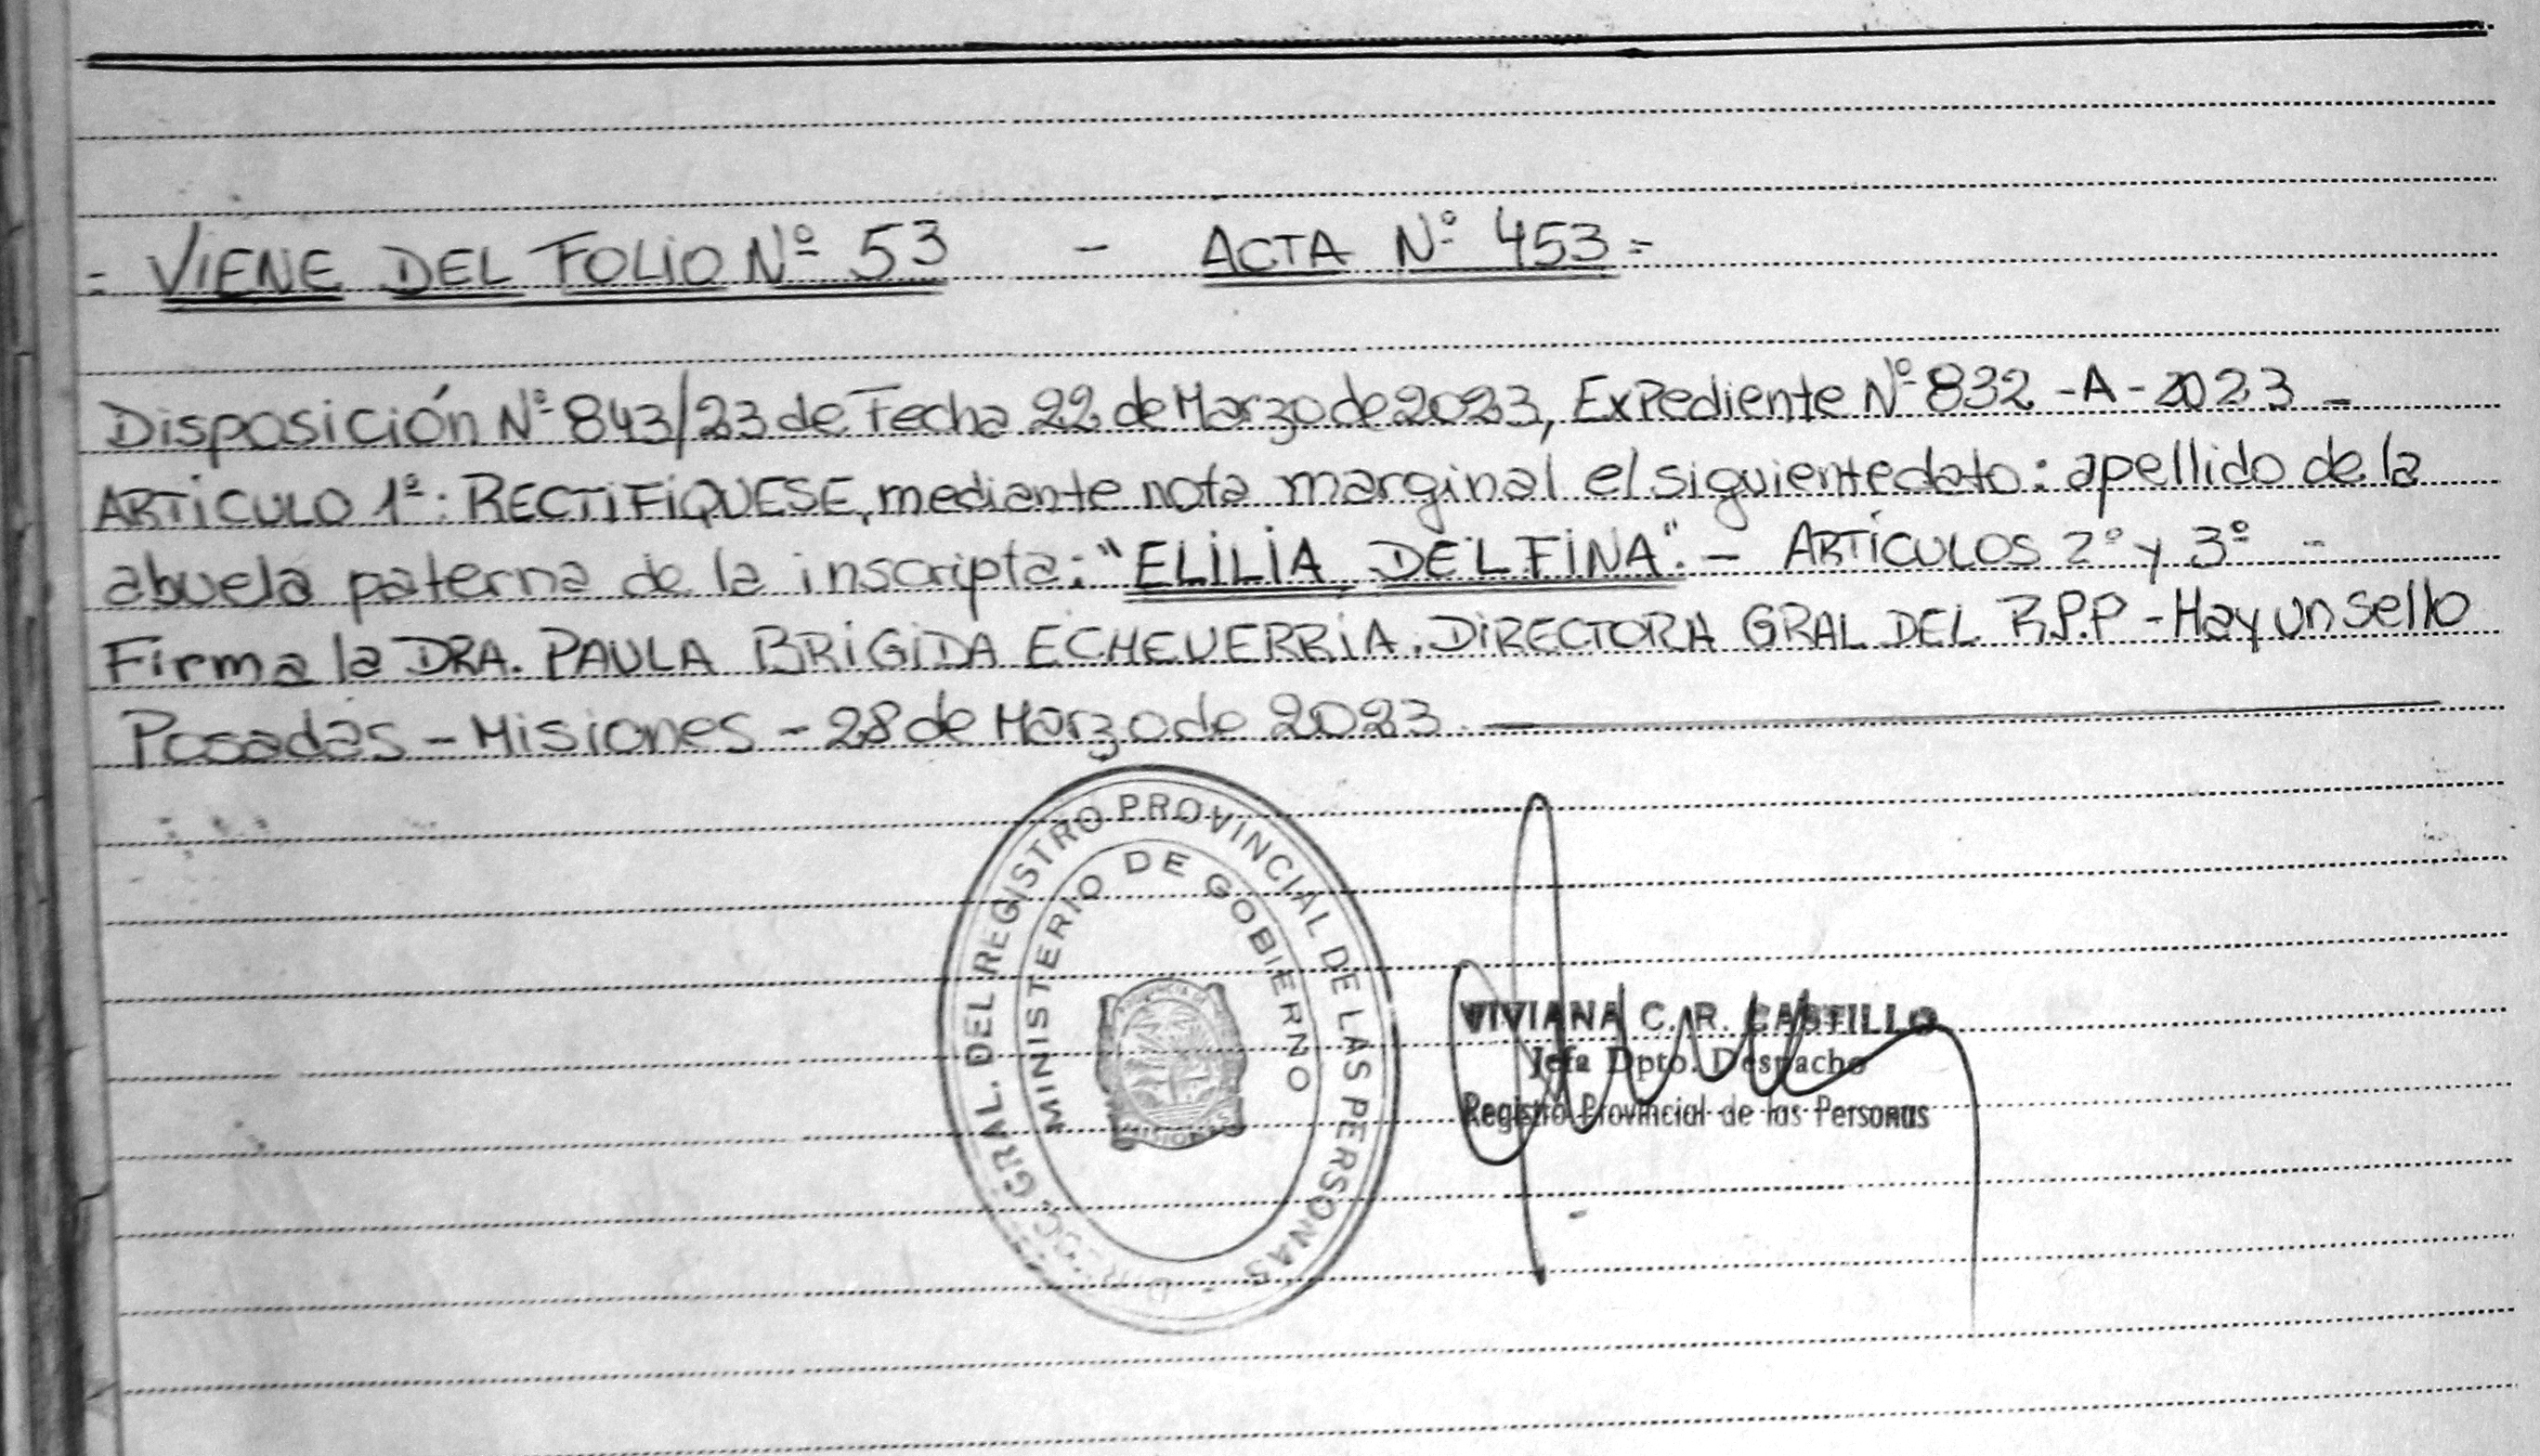 - VIENE DEL FOLIO Nº 53 - ACTA Nº 453 =
Disposición Nº 843/23 de Fecha 22 de Marzo de 2023, Expediente Nº 832 - A - 2023 -
ARTÍCULO 1º: RECTIFIQUESE, mediante nota marginal el siguiente dato: apellido de la
abuela paterna de la inscripta: "ELILIA DELFINA". - ARTÍCULOS 2º y 3º -
Firma la DRA. PAULA BRIGIDA ECHEVERRIA. DIRECTORA GRAL DEL R.P.P - Hay un sello
Posadas - Misiones - 28 de Marzo de 2023.
GRAL. DEL REGISTRO PROVINCIAL DE LAS PERSONAS
MINISTERIO DE GOBIERNO
PROVINCIA DE
MISIONES
VIVIANA C. R. CASTILLO
Jefa Dpto. Despacho
Registro Provincial de las Personas